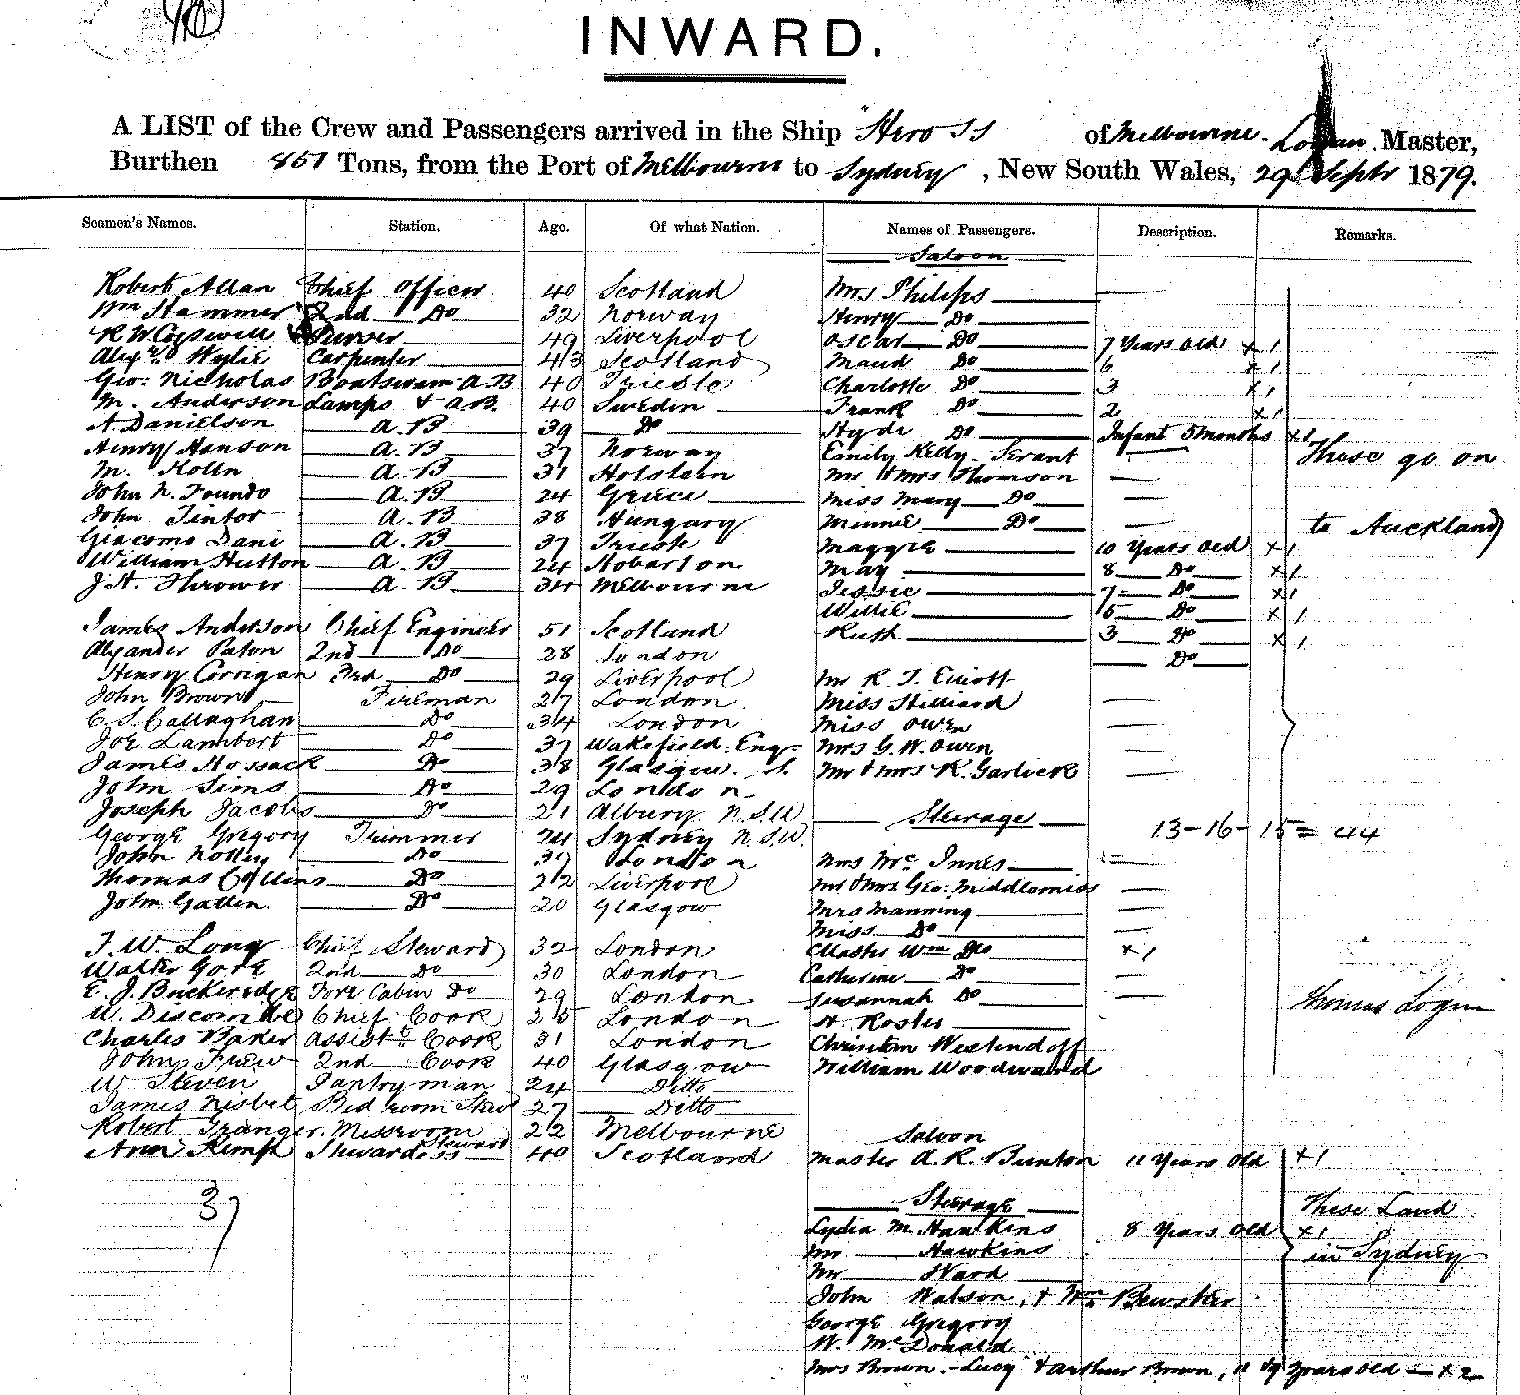 INWARD.
A LIST of the Crew and Passengers arrived in the Ship "Hero SS of Melbourne. Logan Master,
Burthen 851 Tons, from the Port of Melbourne to Sydney, New South Wales, 29 Septr 1879.
Seamen's Names. Station. Age. Of what Nation. Names of Passengers. Description. Remarks.
Saloon
Robert Allan Chief Officer 40 Scotland Mrs Philips
Wm Hammer 2nd Do 32 Norway Henry Do
R W Cogswell Purser 49 Liverpool Oscar Do 7 Years Old x 1
Alexr. Wylie Carpenter 43 Scotland Maud Do 6 x 1
Geo: Nicholas Boatswain A.B 40 Trieste Charlotte Do 3 x 1
M. Anderson Lamps & A.B. 40 Sweden Frank Do 2 x 1
A. Danielson A.B 39 Do Hyde Do Infant 5 Months x 1
Henry Hanson A.B 37 Norway Emily Kelly Servant These go on
M. Holln A.B 31 Holstein Mr & Mrs Thomson
John N. Foundo A.B 24 Greece Miss Mary Do
John Tintor A.B 38 Hungary Minnie Do to Auckland
Giacomo Dani A.B 37 Trieste Maggie 10 Years Old x 1
William Hutton A.B 24 Hobarton May 8 Do x 1
J. H. Thrower A.B 34 Melbourne Jessie 7 Do x 1
Willie 5 Do x 1
James Anderson Chief Engineer 51 Scotland Ruth 3 Do x 1
Alexander Paton 2nd Do 28 London Do
Henry Corrigan 3rd Do 29 Liverpool Mr R. T. Elliott
John Brown Fireman 27 London Miss Hilliard
C. S. Callaghan Do 34 London Miss Owen
Joe Lambert Do 37 Wakefield Eng. Mrs G. W. Owen
James Hossack Do 38 Glasgow. Mr & Mrs R. Garlick
John Sims Do 29 London
Joseph Jacobs Do 21 Albury N.S.W Steerage
George Gregory Trimmer 24 Sydney N.S.W. 13-16-15=44
John Do 37 London Mrs McInnes
Thomas Collins Do 22 Liverpool Mr & Mrs Geo: Middlemiss
John Gallen Do 20 Glasgow Mrs Manning
Miss Do
T. W. Long Chief Steward 32 London Master Wm Do x 1
Walter Gore 2nd Do 30 London Catherine Do
E. J. Buckeridge Fore Cabin Do 29 London Susannah Do
W. Discombe Chief Cook 25 London H. Roster Thomas Logan
Charles Baker Assistt Cook 31 London Christian Westendoff
John Frew 2nd Cook 40 Glasgow William Woodward
W Steven Pantryman 24 Ditto
James Nisbet Bed room Stewd 27 Ditto
Robert Granger. Messroom Steward 22 Melbourne Saloon
Ann Kemp Stewardess 40 Scotland Master A. R. Bunton 11 Years Old x 1
37
Steerage These Land
Lydia M. Hawkins 8 Years Old x 1
Mr Hawkins in Sydney
Mr Ward
John Watson, & Wm Bewsher
George Gregory
W. McDonald
Mrs Brown - Lucy & Arthur Brown, Years Old - x 2